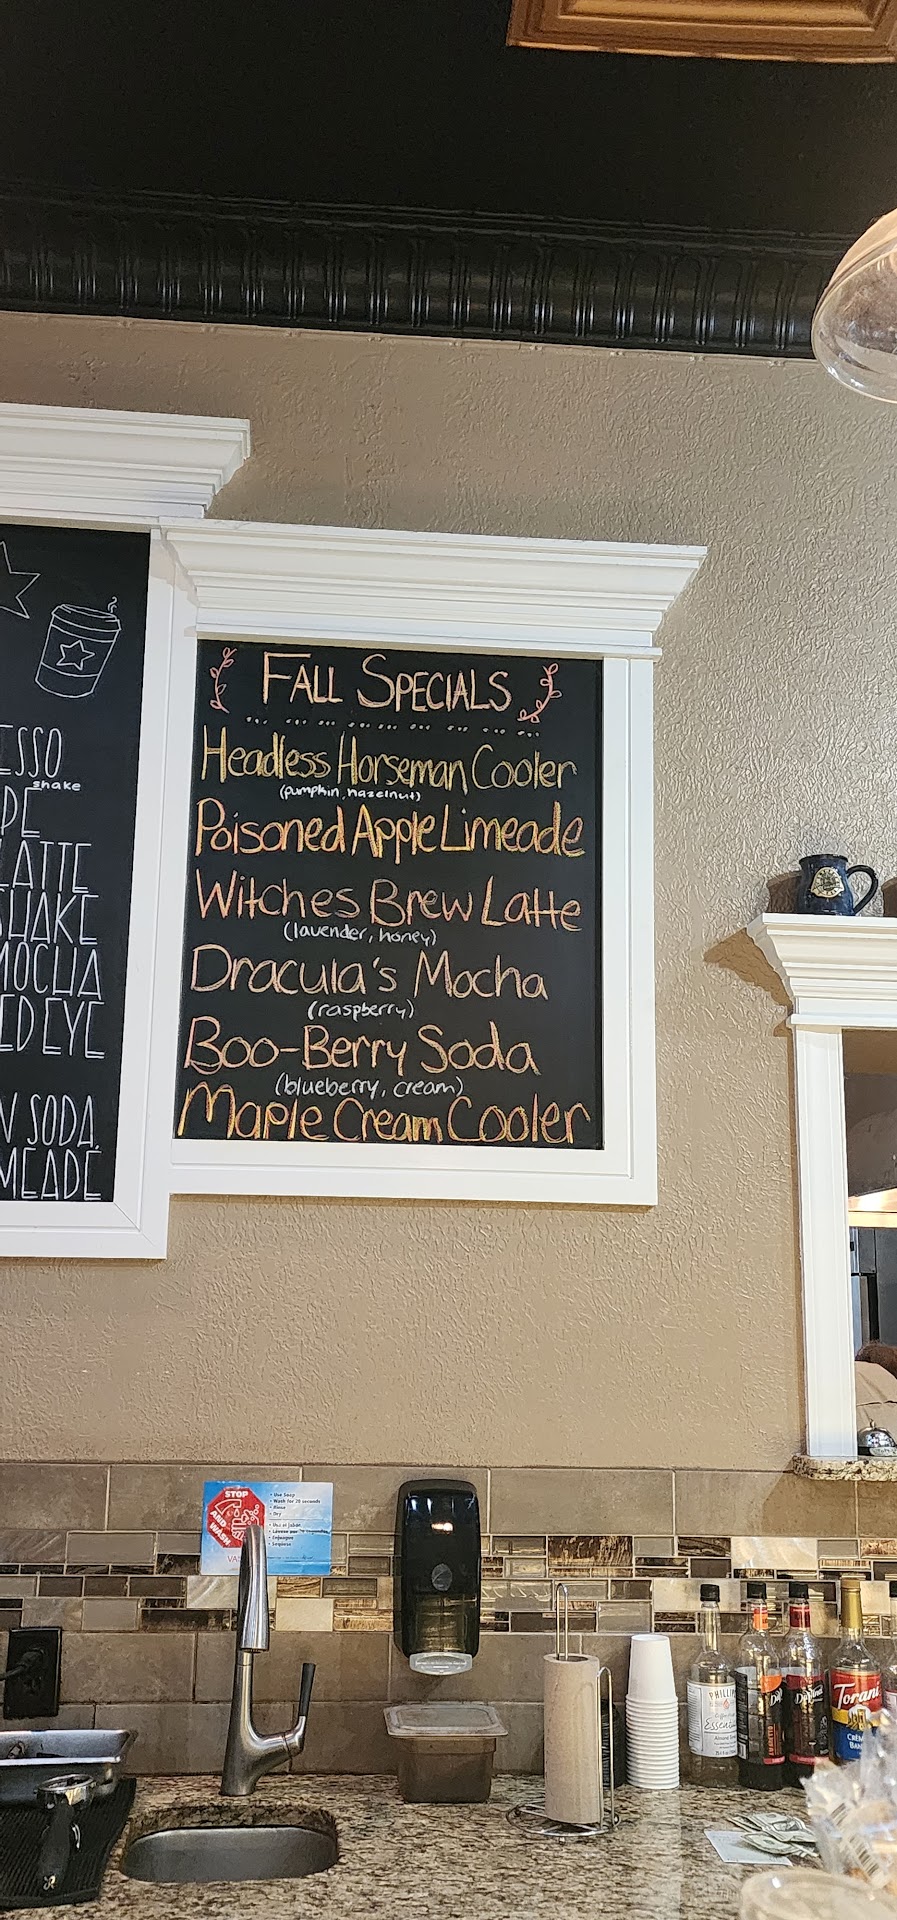 FALL SPECIALS
Headless Horseman Cooler
(pumpkin, hazelnut)
Poisoned Apple Limeade
Witches Brew Latte
(lavender, honey)
Dracula's Mocha
(raspberry)
Boo-Berry Soda
(blueberry, cream)
Maple Cream Cooler
ESSO
shake
PE
LATTE
SHAKE
MOCHA
ED EYE
N SODA,
MEADE
STOP
AND WASH
• Use Soap
• Wash for 20 seconds
• Rinse
• Dry
• Enjuague
• Séquese
PHILLI
Torani